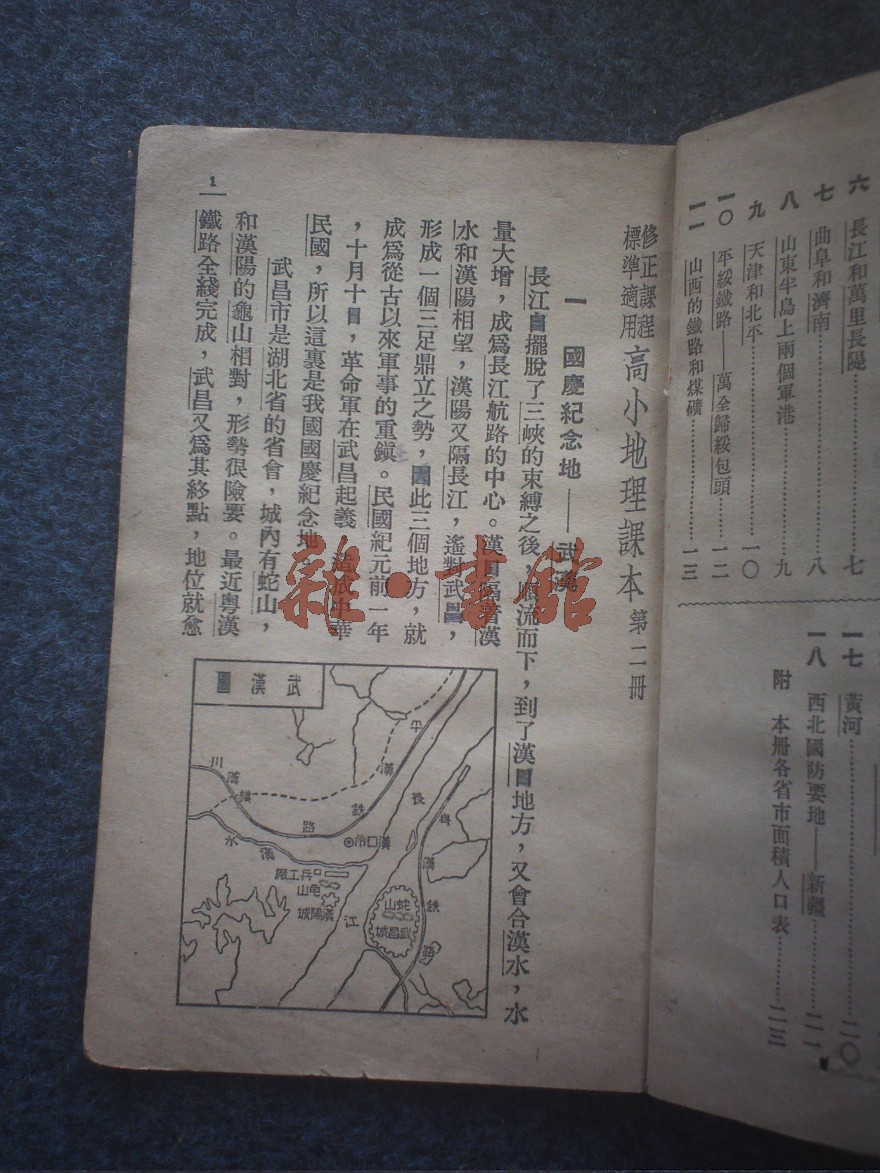 六　長江和萬里長隄……七
七　曲阜和濟南……八
八　山東半島上兩個軍港……九
九　天津和北平……一〇
一〇　平綏鐵路——萬全歸綏包頭……一二
一一　山西的鐵路和煤礦……一三
一七　黃河……二〇
一八　西北國防要地——新疆……二一
附　本册各省市面積人口表……二三
修正課程標準適用 高小地理課本 第二冊
一　國慶紀念地——武漢
長江擺脫了三峽的束縛之後，流而下，到了漢地方，又會合漢水，水
量大增，成爲長江航路的中心。漢隔着漢
水和漢陽相望，漢陽又隔長江，遙對武，
形成一個三足鼎立之勢，此三個地方，就
成爲從古以來軍事的重鎭。民國紀元前一年
，十月十，革命軍在武昌起義　造成中華
民國，所以這裏是我國國慶紀念地
武昌市是湖北省的省會，城內有蛇山，
和漢陽的龜山相對，形勢很險要。最近粵漢
鐵路全綫完成，武昌又爲其終點，地位就愈
1
武漢圖
平漢鐵路
川漢鐵路
漢水
漢口市
兵工廠
龜山
漢陽城
長江
蛇山
武昌城
粵漢鐵路
雜·書館